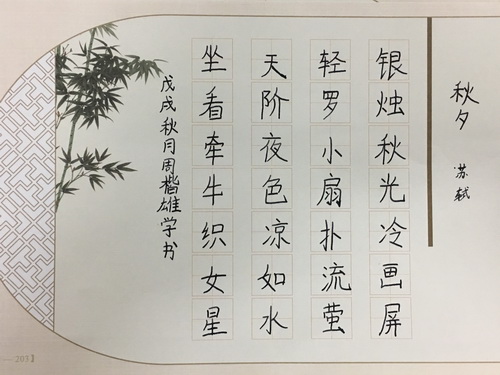 秋夕
苏轼
银烛秋光冷画屏
轻罗小扇扑流萤
天阶夜色凉如水
坐看牵牛织女星
戊戌秋月周楷雄学书